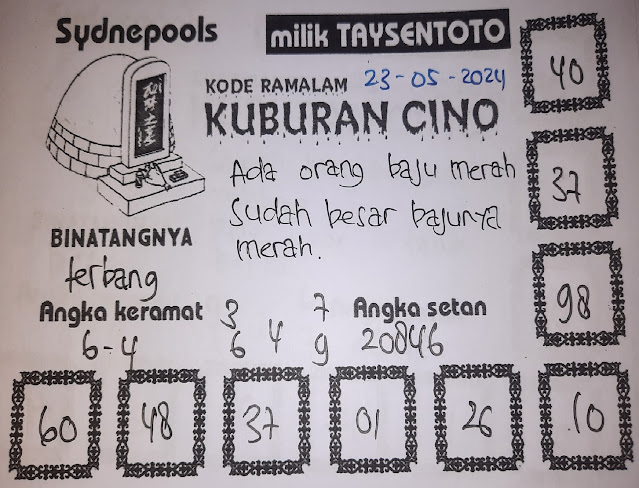 Sydnepools
milik TAYSENTOTO
40
KODE RAMALAM 23-05-2024
KUBURAN CINO
Ada orang baju merah
Sudah besar bajunya
merah.
37
BINATANGNYA
terbang
98
Angka keramat
6-4
3 7
6 4 9
Angka setan
20846
60 48 37 01 26 10